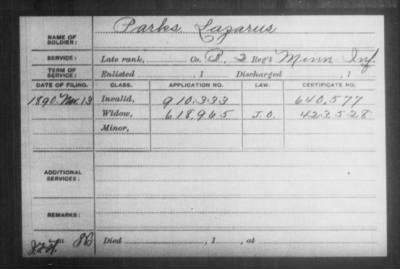 NAME OF SOLDIER: Parks, Lazarus
SERVICE: Late rank, Co. B, 2 Reg't Minn Inf.
TERM OF SERVICE: Enlisted , 1 Discharged , 1
DATE OF FILING. CLASS. APPLICATION NO. LAW. CERTIFICATE NO.
1890 Nov. 13 Invalid, 910.333 640,577
Widow, 618,965 J.O. 423,528
Minor,
ADDITIONAL SERVICES:
REMARKS:
Died , 1 , at